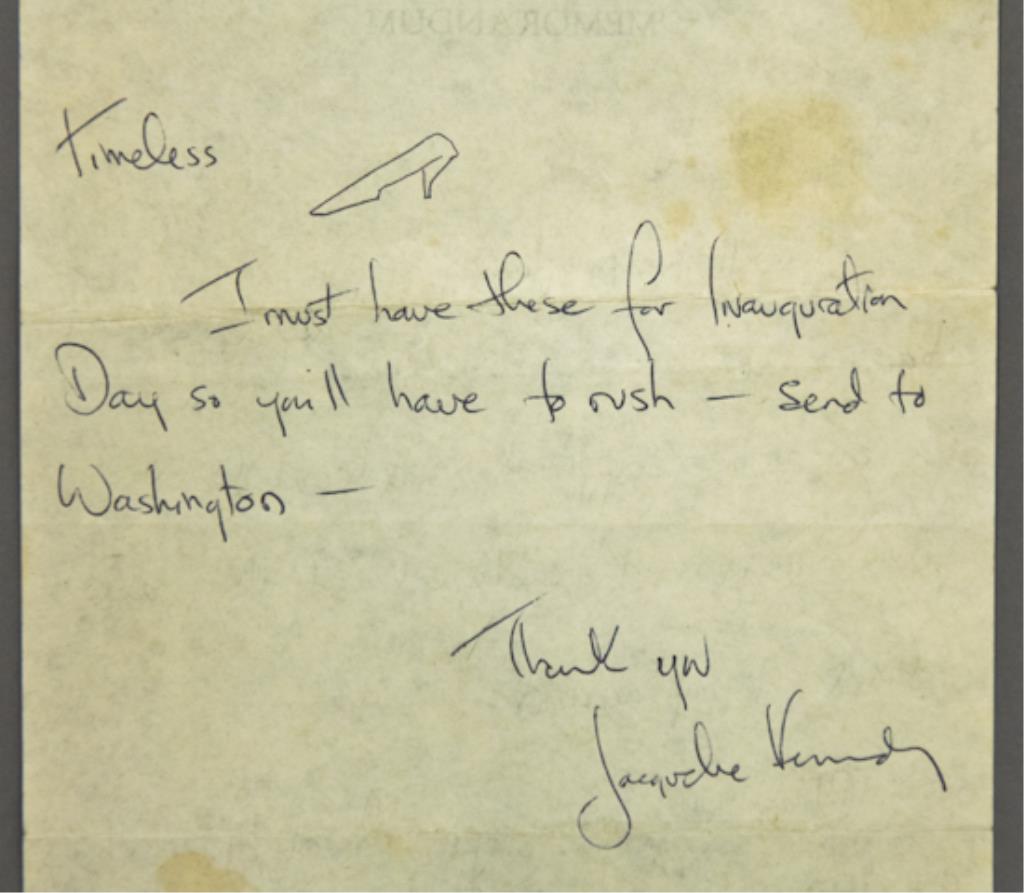 MEMORANDUM
Timeless
I must have these for Inauguration
Day so you'll have to rush — send to
Washington —
Thank you
Jacqueline Kennedy